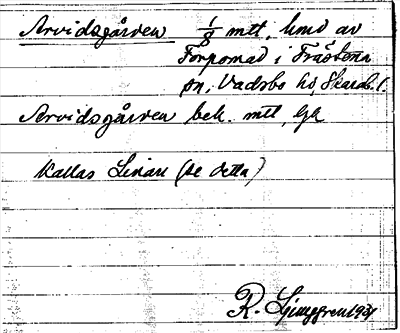 Arvidsgården 1/8 mtt, hmd av
Torpomad i Fräs
sn, Vadsbo hd, Skarab. l.
Arvidsgården bek. mtt, Lgh
Kallas Linan (se detta)
R. Ljunggren 1931